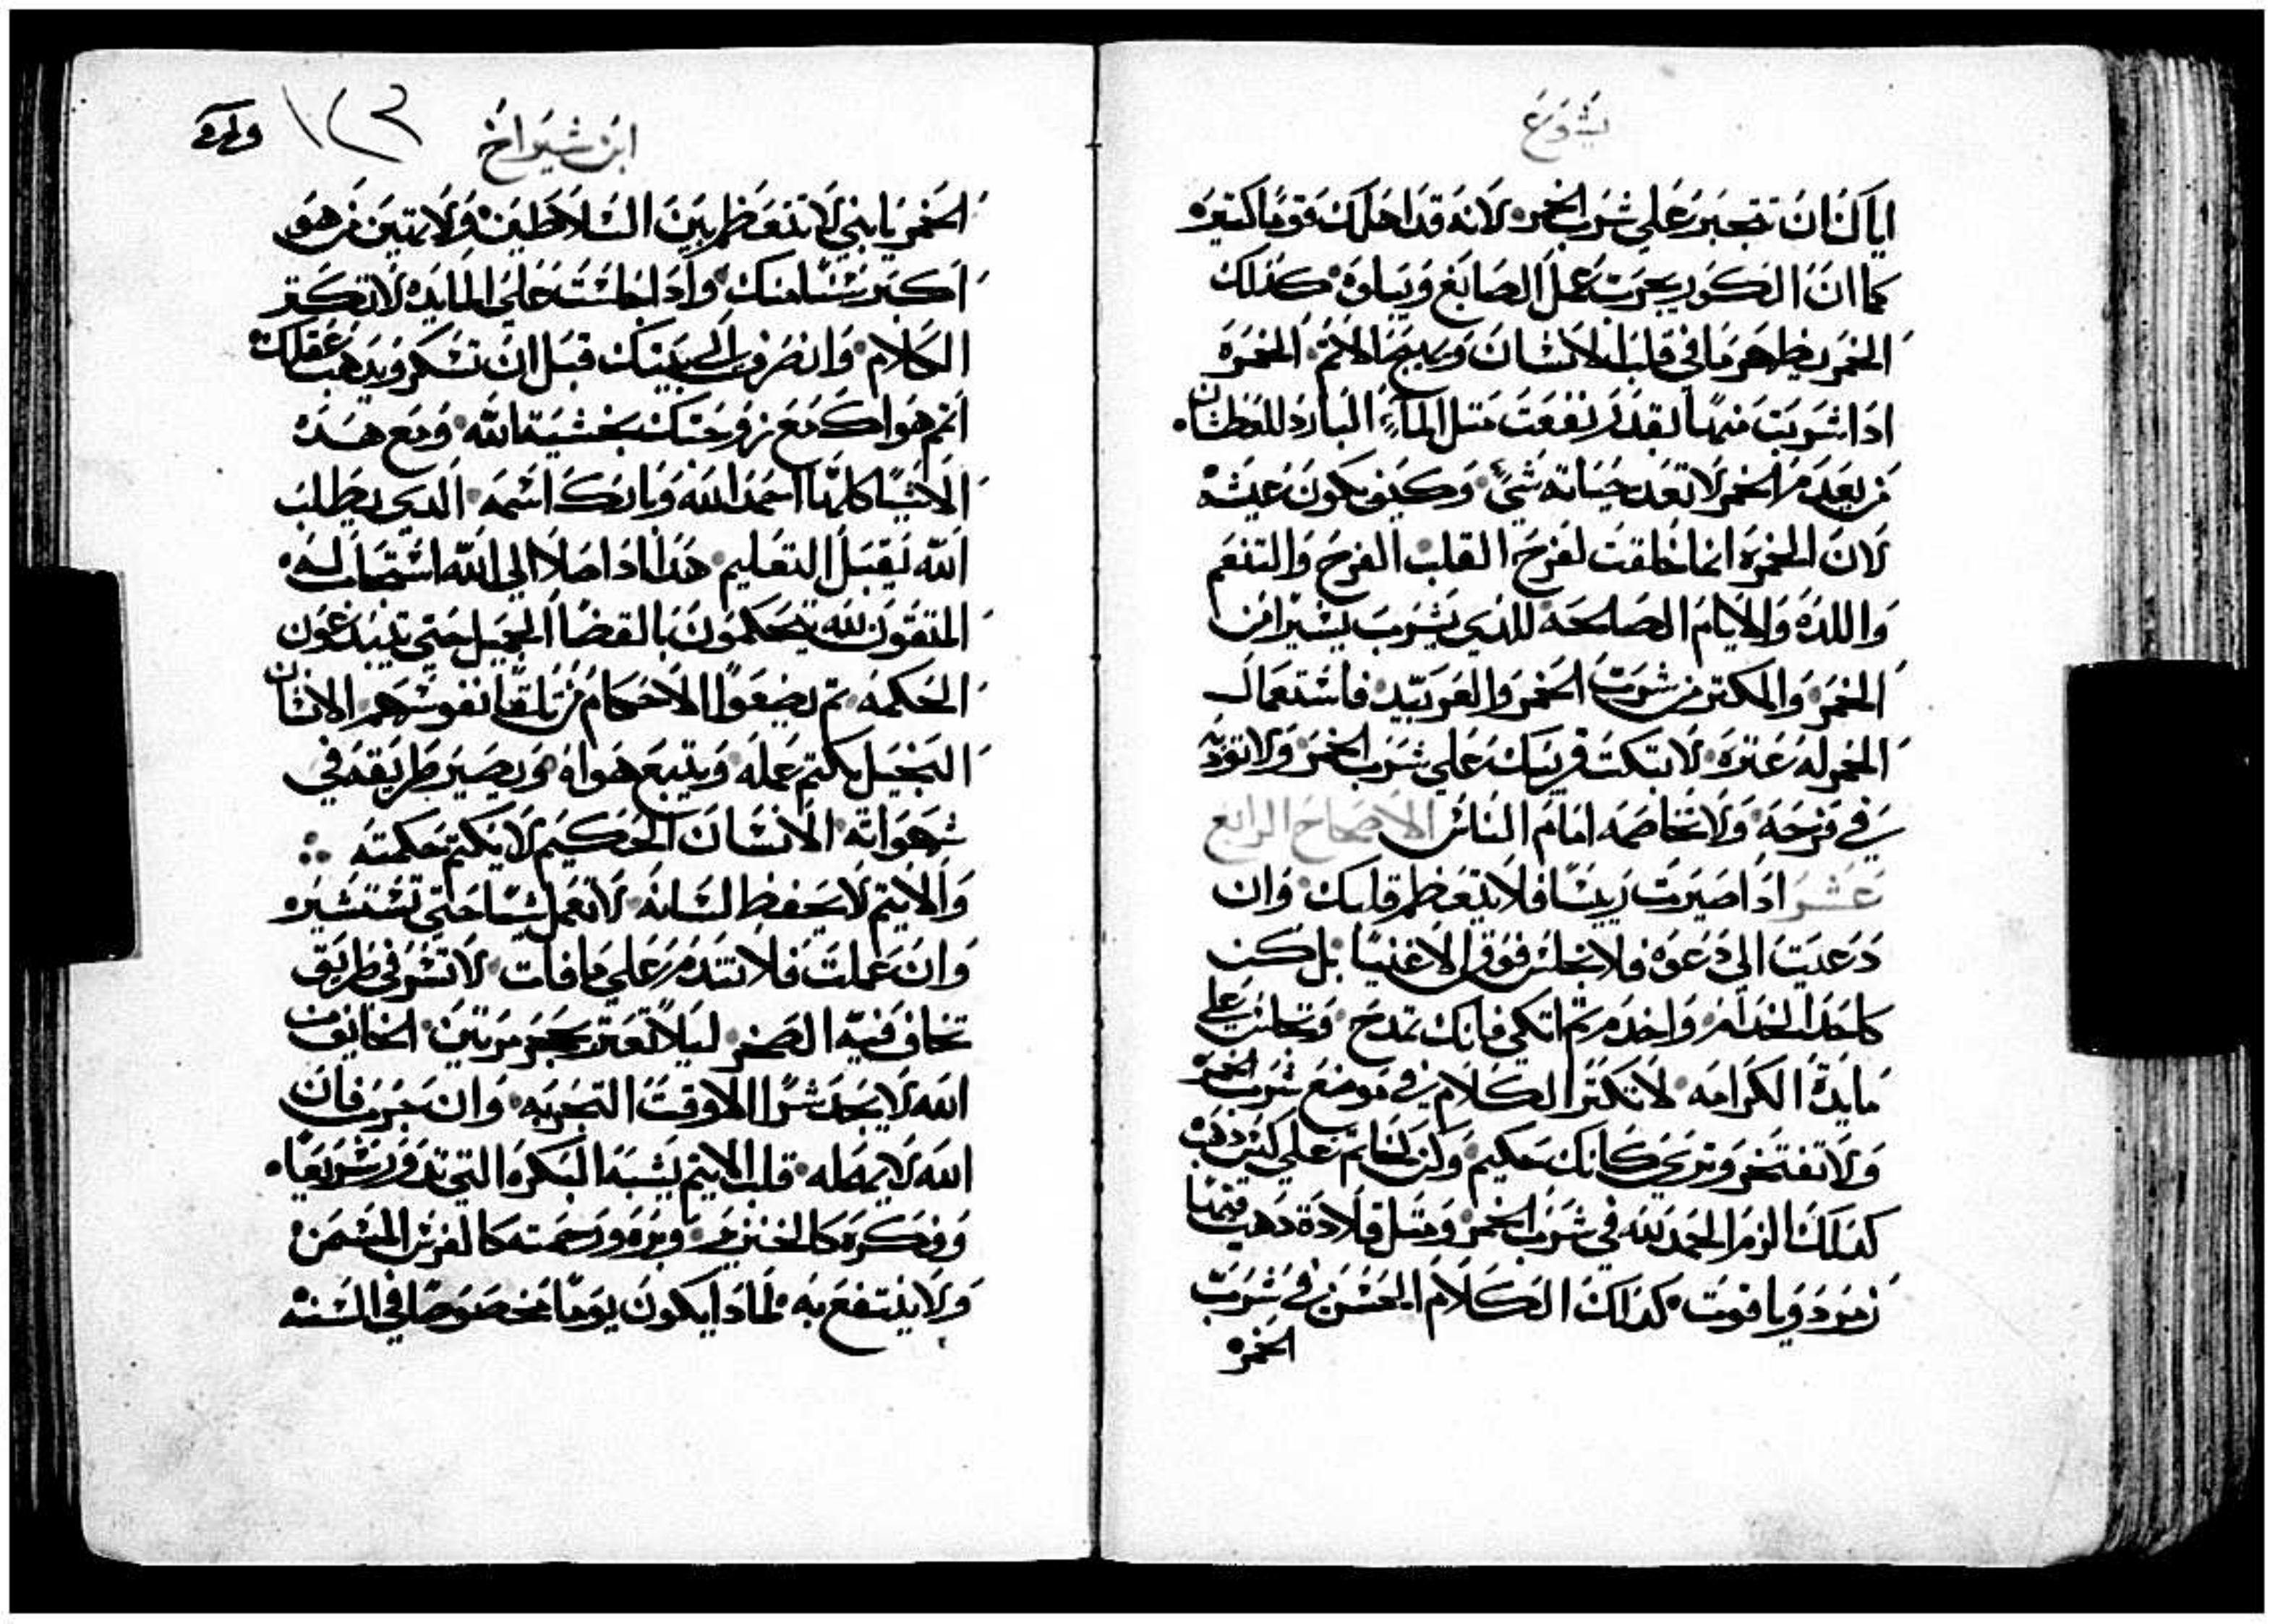 يشوع
اياك ان تتجبر علي شرب الخمر لانه قد اهلك قوما كتيره
كما ان الكور يجرب عمل الصايغ ويباوه كذلك
الخمر يظهر ما في قلب الانسان الاتم الخمره
ادا شربت منها بقدر نفعت متل المآء البارد للعطشان
من يعدم الخمر لا تعد حياته شي وكيف يكون عيشه
لان الخمره انما خلقت لفرح القلب الفرح والتنعم
واللده والايام الصالحه للدي يشرب يسيرا من
الخمر والمكتر من شرب الخمر والعربيد فاستعمال
الخمر له عتره لا تبكت قريبك علي شرب الخمر ولا توديه
في فرحه ولا تخاصمه امام الناس الاصحاح الرابع
عشر ادا صيرت ريسا فلا يتعظم قلبك وان
دعيت الي دعوه فلا تجلس فوق الاغنيا بل كن
كاحد الخدام واخدم تم اتكي فانك تمدح وتجلس علي
مايدة الكرامه لا تكتر الكلام في موضع شرب الخمر
ولا تفتخر وتري كانك حكيم وكن كخاتم علي كنز دهب
كدلك الزم الحمد لله في شرب الخمر ومتل قلادة دهب فيها
زمرد وياقوت كدلك الكلام الحسن في شرب
الخمر
ابن شيراخ
١٢٣
الخمر يا بني لا تتعظم بين السلاطين ولا بين من هو
اكبر سنا منك وادا جلست علي المايده لا تكتر
الكلام وانصرف الي بيتك قبل ان تسكر ويدهب عقلك
تم هواك مع زوجتك بخشية الله ومع هده
الاشيا كلها احمد الله وبارك اسمه الدي يطلب
الله يقبل التعليم هدا ادا صلا الي الله استجاب له
المتقون لله يحكمون بالقضا الجميل حتي يبتدعون
الحكمه تم يضعوا الاحكام من تلقا نفوسهم الانسان
البخيل يكتم عمله ويتبع هواه ويصير طريقه في
شهواته الانسان الحكيم لا يكتم حكمته
والاتيم لا يحفظ لسانه لا تعمل شيا حتي تستشير
وان عملت فلا تتدمر علي ما فات لا تسر في طريق
تخاف فيه الصخر ليلا تعتر بحجر مرتين الخايف من
الله لا يجد شرا الا وقت التجربه وان جرب فان
الله لا يهمله قلب الاتيم يشبه البكره التي تدور سريعا
وفكره كالخنزير وبره ورحمته كالفرس المسمن
ولا ينتفع به لمادا يكون يوما مخصوصا في السنه